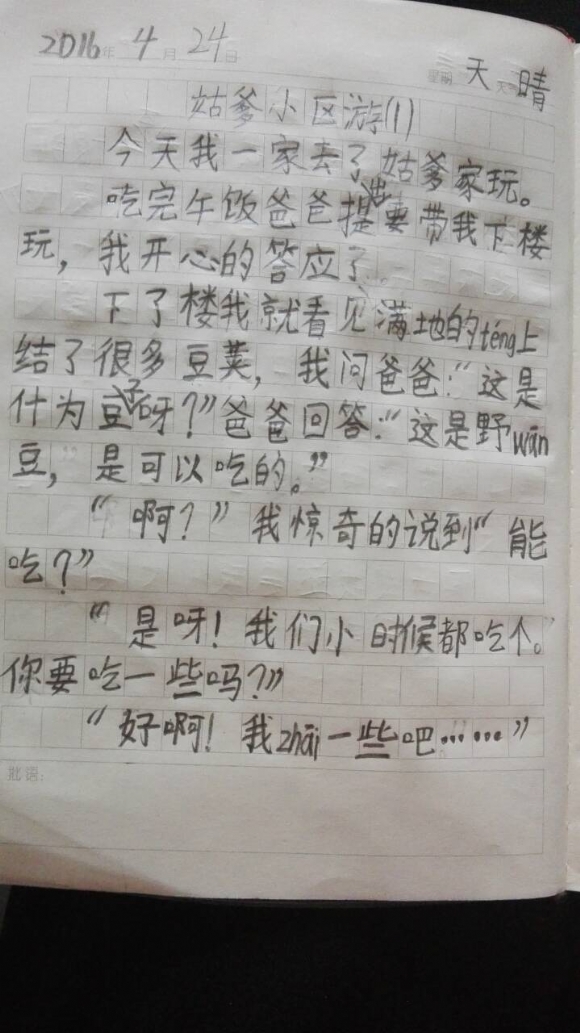 2016年 4月 24日
星期 天 天气 晴
姑爹小区游(1)
今天我一家去了姑爹家玩。
吃完午饭爸爸提出要带我下楼
玩，我开心的答应了
下了楼我就看见满地的téng上
结了很多豆荚，我问爸爸：“这是
什为豆子呀？”爸爸回答：“这是野wān
豆，是可以吃的。”
“啊？”我惊奇的说到“能
吃？”
“是呀！我们小时候都吃个。
你要吃一些吗？”
“好啊！我zhāi一些吧……”
批语：